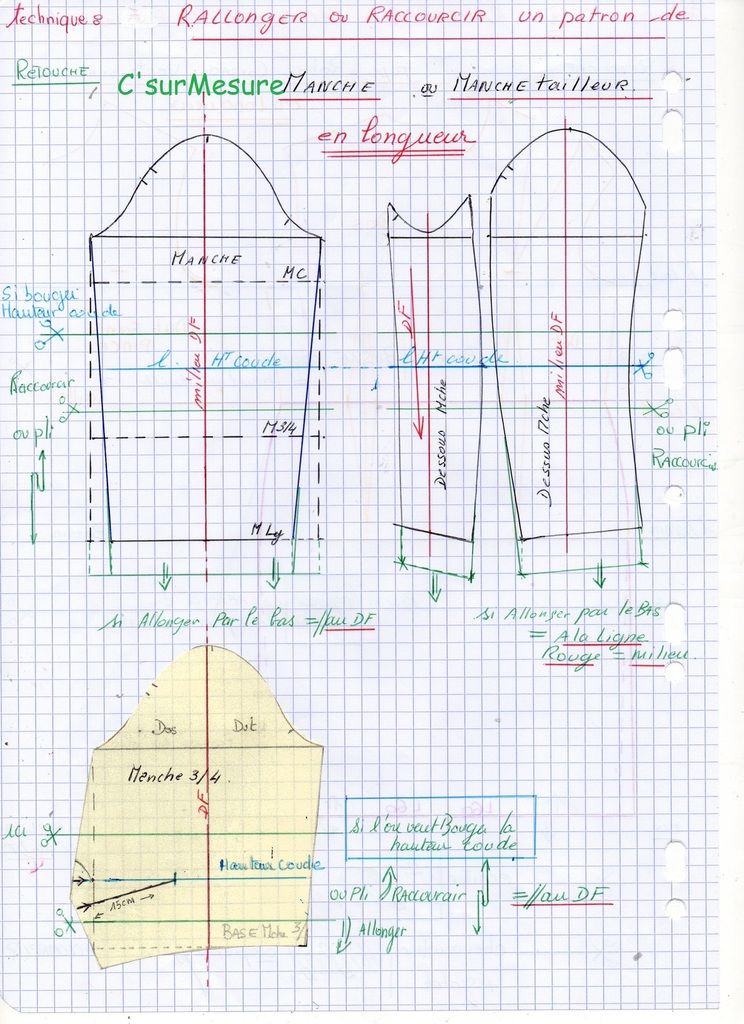 techniques RALLONGER ou RACCOURCIR un patron de
RETOUCHE C'surMesure MANCHE ou MANCHE tailleur.
en longueur
MANCHE
MC
si bouger
Hauteur coude
milieu DF
l. HT coude
Raccourcir
ou pli
M3/4
M Lg
DF
l HT coude
milieu DF
Dessous Mche
Dessus Mche
ou pli
RACCOURCIR
si Allonger Par le bas =//au DF
si Allonger par le BAS
= A la ligne
Rouge = milieu.
Dos Dvt
Manche 3/4.
DF
ici
Hauteur Coude
15cm
BASE Mche 3/
si l'on veut Bouger la
hauteur coude
ou Pli RACCOURCIR =//au DF
Allonger